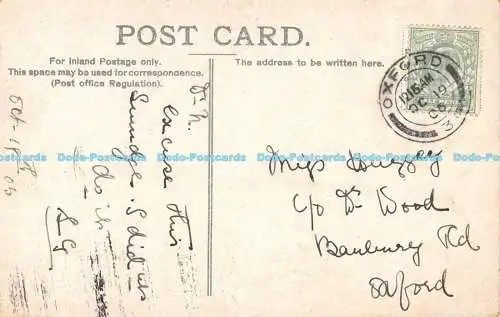 POST CARD.
For Inland Postage only.
This space may be used for correspondence.
(Post office Regulation).
The address to be written here.
OXFORD
12.15 AM
OC 19
Oct. 18
excuse this
Smudge. I did
do it
Miss
c/o Dr Wood
Banbury Rd
Oxford
Dodo-Postcards Dodo-Postcards Dodo-Postcards Dodo-Postcards Dodo-Postcards